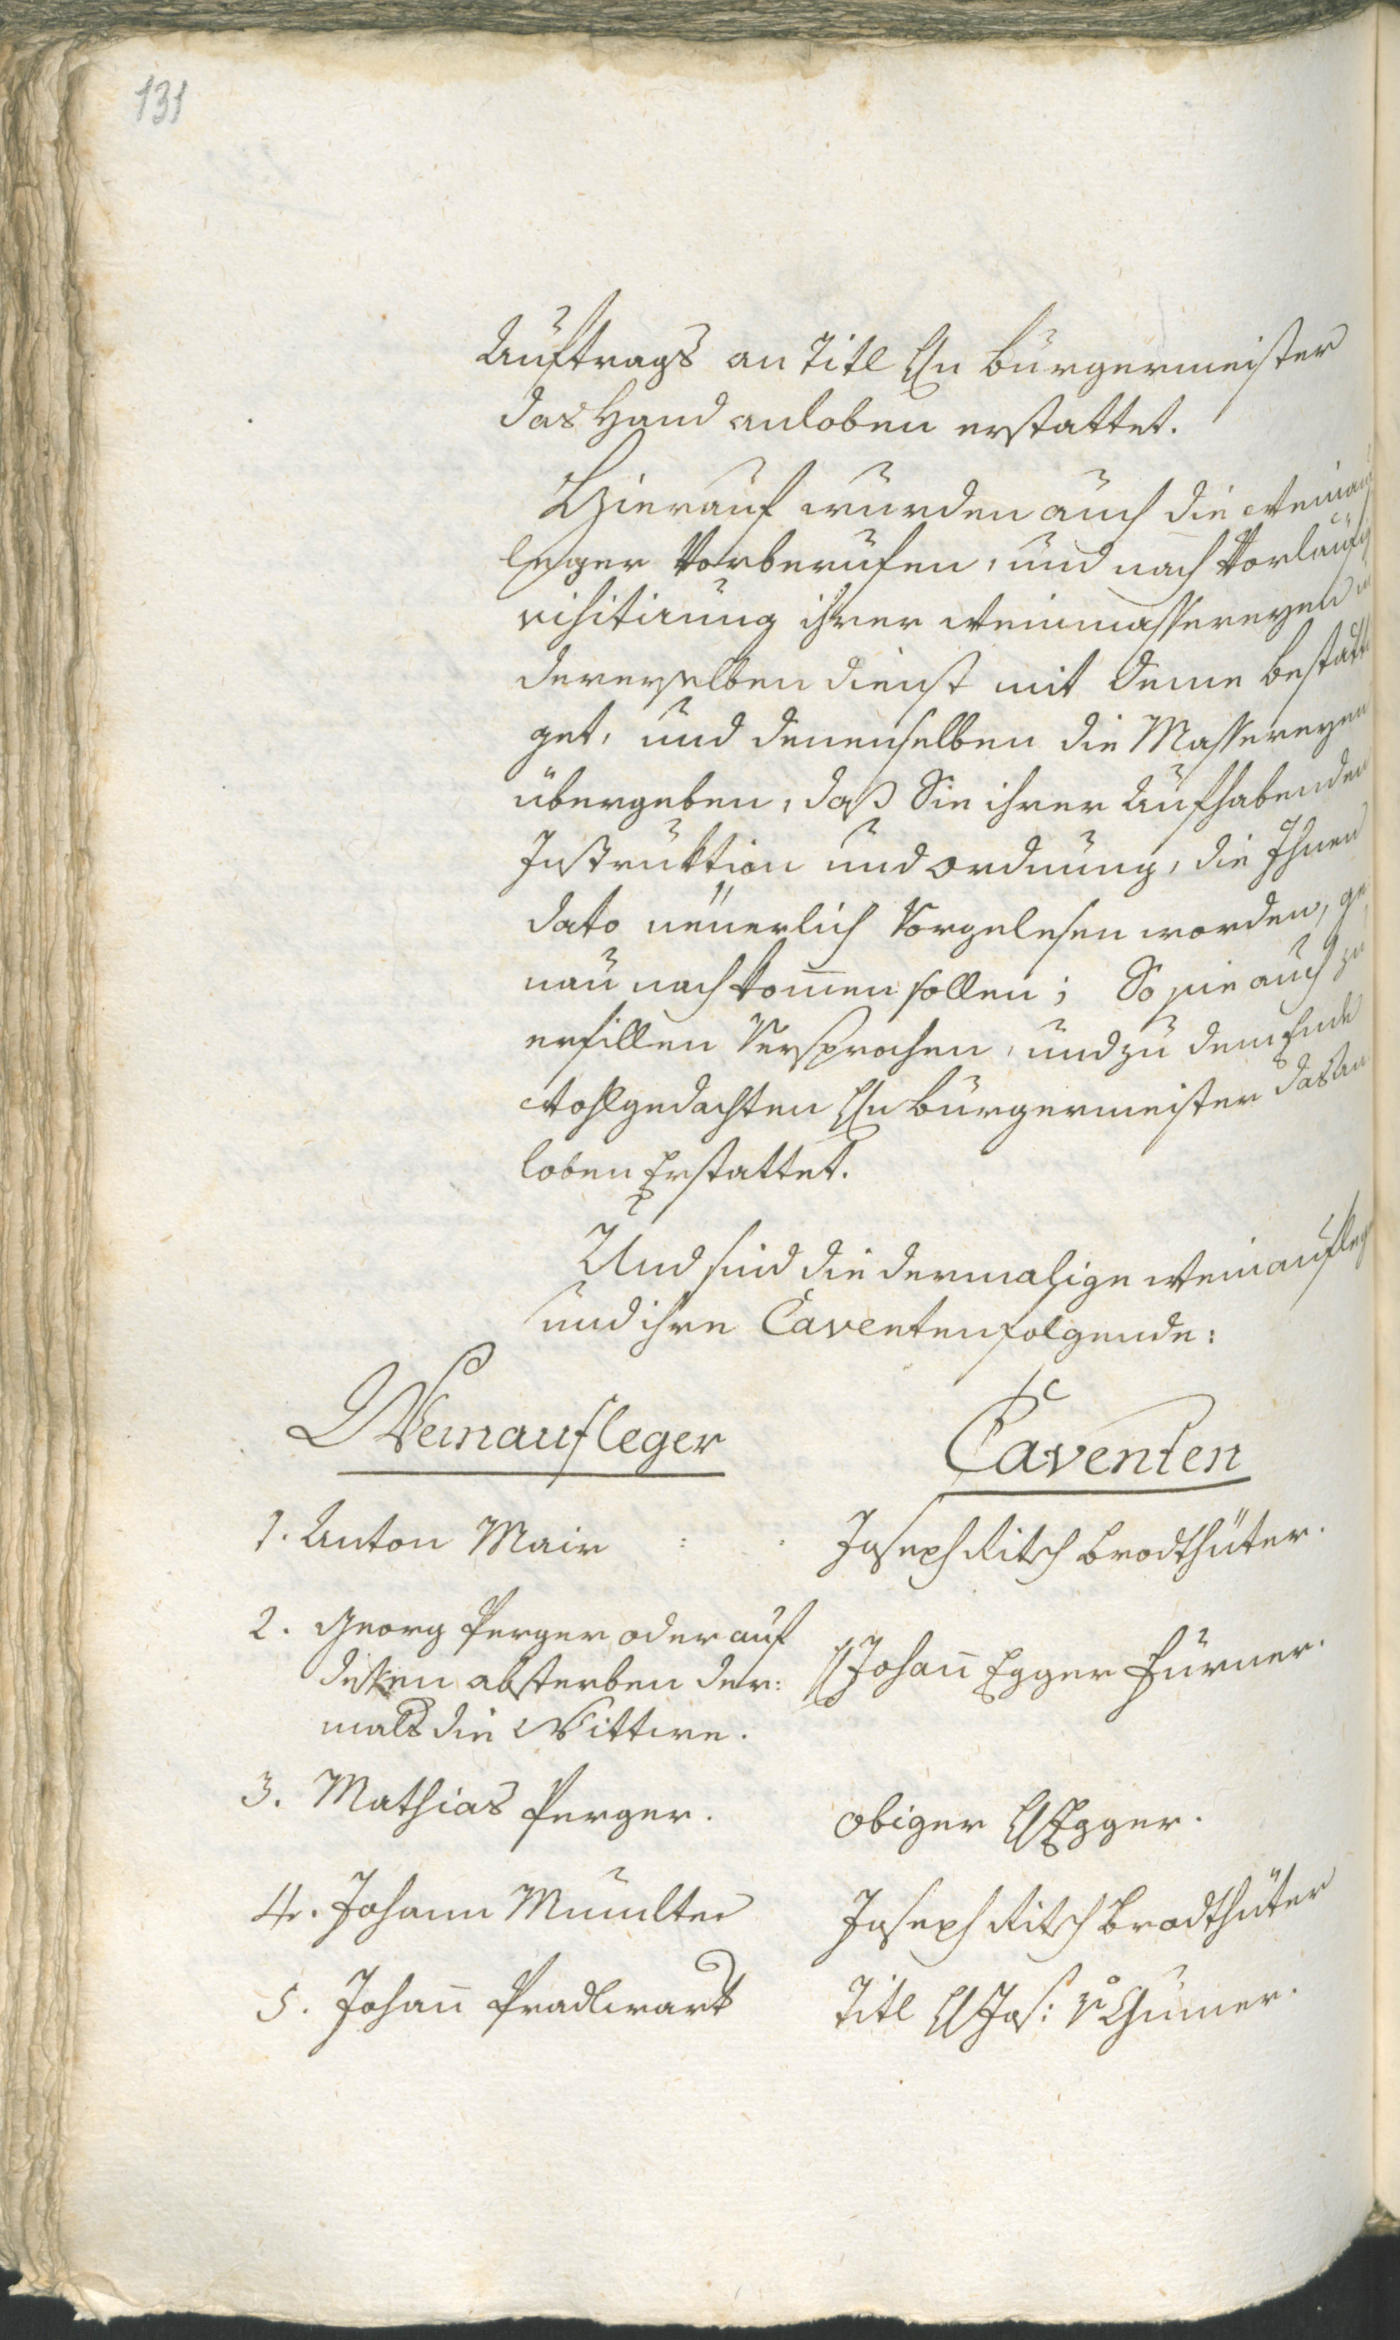 131
Auftrags an Titl Hn Bürgermeister
das Hand anloben erstattet.
Hierauf wurden auch die Weinauf
leger Vorberufen, und nach Vorläufig
visitirung ihrer Weinmassereyen in
derenselben dienst mit deme bestätti
get, und denenselben die Massereyen
übergeben, daß Sie ihrer Aufhabenden
Instruktion und ordnung, die Ihnen
dato neüerlich Vorgelesen worden, ge
nau nachkom̄en sollen; So sie auch zu
erfillen Versprochen, und zu dem Ende
Wohlgedachten Hn Bürgermeister das An
loben Erstattet.
Und sind die dermalige Weinaufleger
und ihre Caventen folgende:
Weinaufleger Caventen
1. Anton Mair : . Joseph Ritsch Brodthüter.
2. Georg Perger oder auf
dessen absterben der: H Johan̄ Egger Fürner.
mals die Wittwe.
3. Mathias Perger. obiger H Egger.
4. Johann Mumlter Joseph Ritsch Brodthüter
5. Johan̄ Pradlwart Titl H Jos: v Gumer.